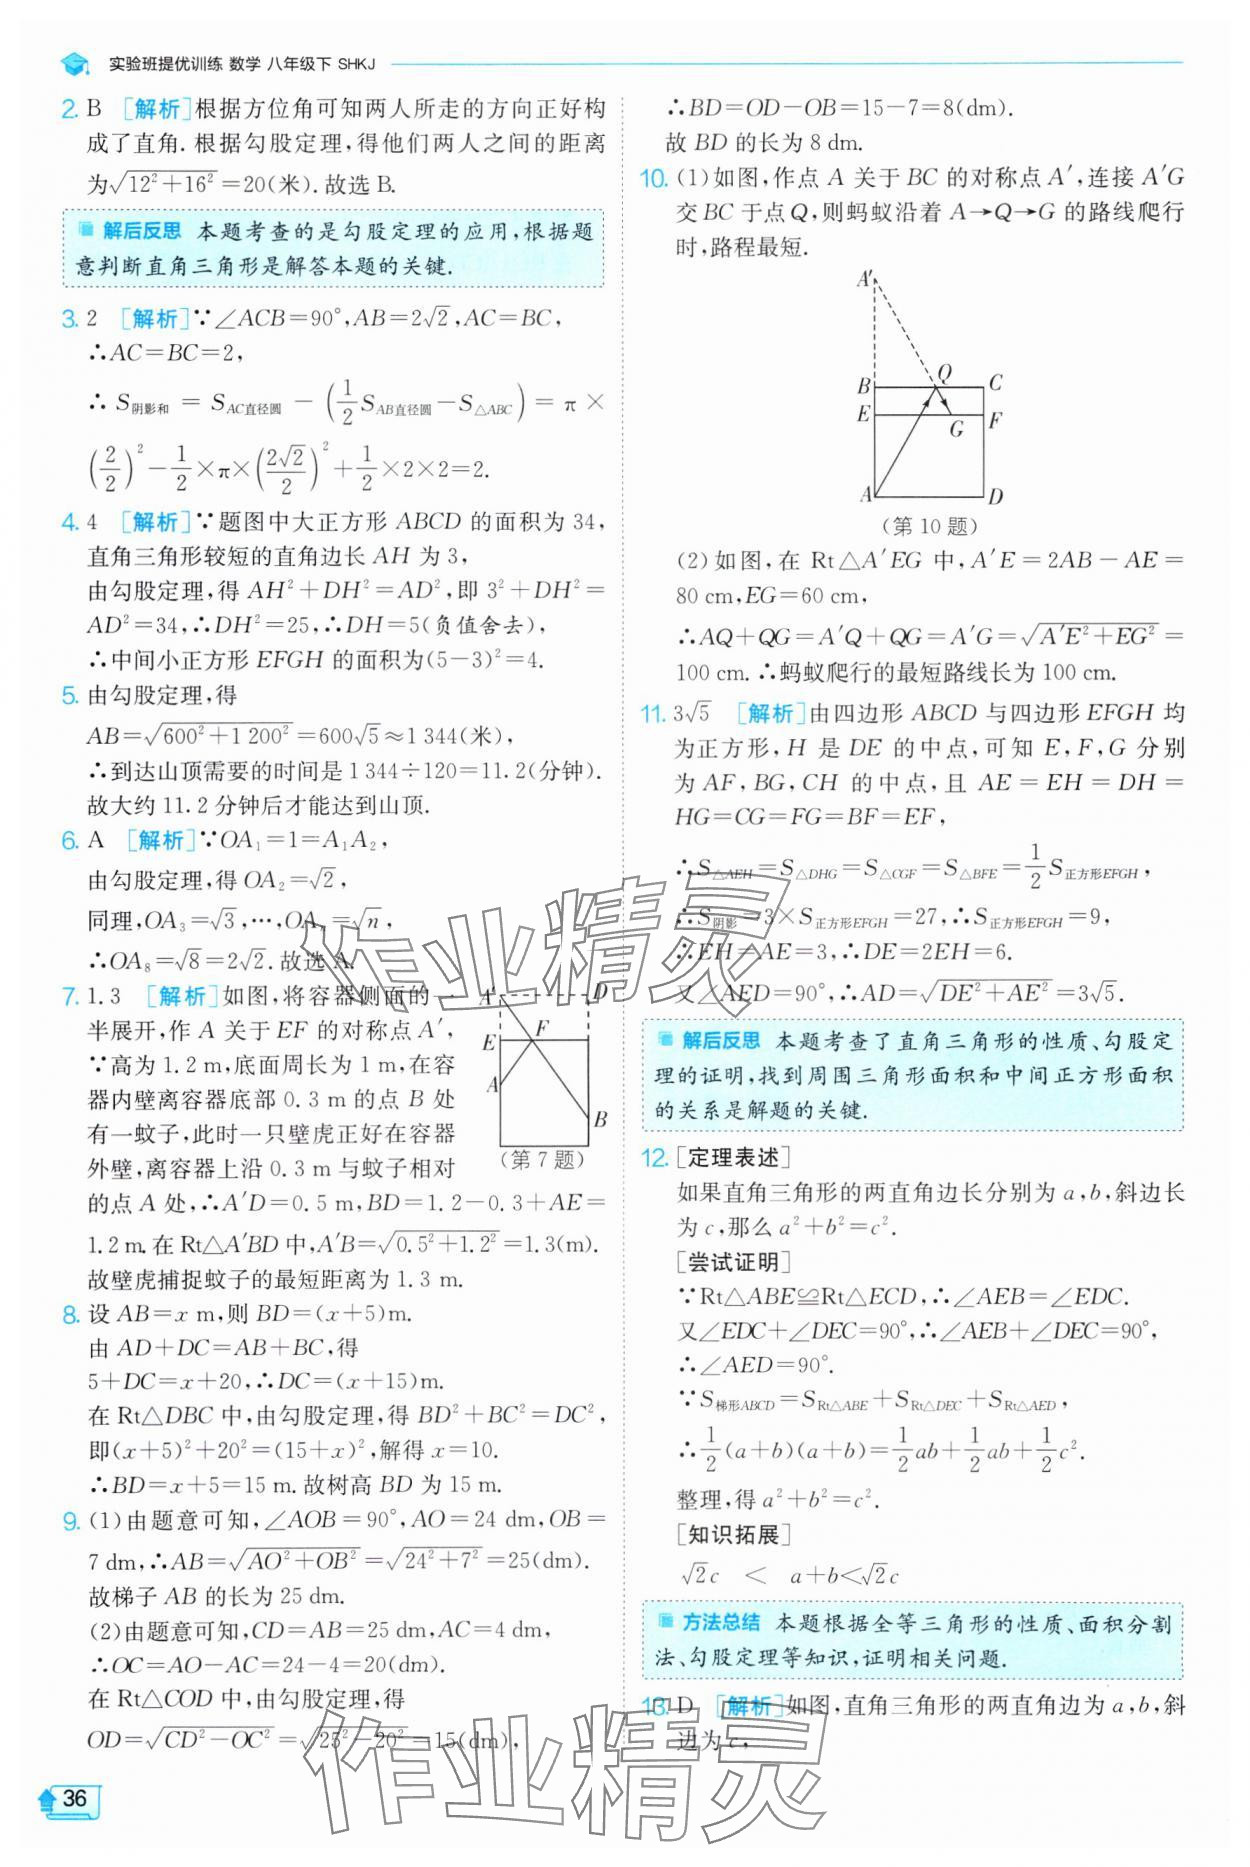 实验班提优训练 数学 八年级下 SHKJ
2. B [解析]根据方位角可知两人所走的方向正好构
成了直角.根据勾股定理,得他们两人之间的距离
为√(12²+16²)=20(米).故选B.
解后反思 本题考查的是勾股定理的应用,根据题
意判断直角三角形是解答本题的关键.
3. 2 [解析]∵∠ACB=90°,AB=2√2,AC=BC,
∴AC=BC=2,
∴S阴影和 = S_AC直径圆 − (1/2 S_AB直径圆−S_△ABC) = π ×
(2/2)²−1/2×π×(2√2/2)²+1/2×2×2=2.
4. 4 [解析]∵题图中大正方形ABCD的面积为34,
直角三角形较短的直角边长AH为3,
由勾股定理,得AH²+DH²=AD²,即3²+DH²=
AD²=34,∴DH²=25,∴DH=5(负值舍去),
∴中间小正方形EFGH的面积为(5−3)²=4.
5. 由勾股定理,得
AB=√(600²+1 200²)=600√5≈1 344(米),
∴到达山顶需要的时间是1 344÷120=11.2(分钟).
故大约11.2分钟后才能达到山顶.
6. A [解析]∵OA₁=1=A₁A₂,
由勾股定理,得OA₂=√2,
同理,OA₃=√3,…,OAₙ=√n,
∴OA₈=√8=2√2.故选A.
7. 1.3 [解析]如图,将容器侧面的一
半展开,作A关于EF的对称点A′,
∵高为1.2 m,底面周长为1 m,在容
器内壁离容器底部0.3 m的点B处
有一蚊子,此时一只壁虎正好在容器
外壁,离容器上沿0.3 m与蚊子相对
的点A处,∴A′D=0.5 m,BD=1.2−0.3+AE=
1.2 m.在Rt△A′BD中,A′B=√(0.5²+1.2²)=1.3(m).
故壁虎捕捉蚊子的最短距离为1.3 m.
A′ D
E F
A
B
(第7题)
8. 设AB=x m,则BD=(x+5)m.
由AD+DC=AB+BC,得
5+DC=x+20,∴DC=(x+15)m.
在Rt△DBC中,由勾股定理,得BD²+BC²=DC²,
即(x+5)²+20²=(15+x)²,解得x=10.
∴BD=x+5=15 m.故树高BD为15 m.
9. (1)由题意可知,∠AOB=90°,AO=24 dm,OB=
7 dm,∴AB=√(AO²+OB²)=√(24²+7²)=25(dm).
故梯子AB的长为25 dm.
(2)由题意可知,CD=AB=25 dm,AC=4 dm,
∴OC=AO−AC=24−4=20(dm).
在Rt△COD中,由勾股定理,得
OD=√(CD²−OC²)=√(25²−20²)=15(dm),
36
∴BD=OD−OB=15−7=8(dm).
故BD的长为8 dm.
10. (1)如图,作点A关于BC的对称点A′,连接A′G
交BC于点Q,则蚂蚁沿着A→Q→G的路线爬行
时,路程最短.
A′
B Q C
E G F
A D
(第10题)
(2)如图,在Rt△A′EG中,A′E=2AB−AE=
80 cm,EG=60 cm,
∴AQ+QG=A′Q+QG=A′G=√(A′E²+EG²)=
100 cm.∴蚂蚁爬行的最短路线长为100 cm.
11. 3√5 [解析]由四边形ABCD与四边形EFGH均
为正方形,H是DE的中点,可知E,F,G分别
为AF,BG,CH的中点,且AE=EH=DH=
HG=CG=FG=BF=EF,
∴S_△AEH=S_△DHG=S_△CGF=S_△BFE=1/2 S_正方形EFGH,
∴S阴影=3×S_正方形EFGH=27,∴S_正方形EFGH=9,
∴EH=AE=3,∴DE=2EH=6.
又∠AED=90°,∴AD=√(DE²+AE²)=3√5.
解后反思 本题考查了直角三角形的性质、勾股定
理的证明,找到周围三角形面积和中间正方形面积
的关系是解题的关键.
12. [定理表述]
如果直角三角形的两直角边长分别为a,b,斜边长
为c,那么a²+b²=c².
[尝试证明]
∵Rt△ABE≌Rt△ECD,∴∠AEB=∠EDC.
又∠EDC+∠DEC=90°,∴∠AEB+∠DEC=90°,
∴∠AED=90°.
∵S_梯形ABCD=S_Rt△ABE+S_Rt△DEC+S_Rt△AED,
∴1/2(a+b)(a+b)=1/2ab+1/2ab+1/2c².
整理,得a²+b²=c².
[知识拓展]
√2c < a+b<√2c
方法总结 本题根据全等三角形的性质、面积分割
法、勾股定理等知识,证明相关问题.
13. D [解析]如图,直角三角形的两直角边为a,b,斜
边为c,
作业精灵
作业精灵